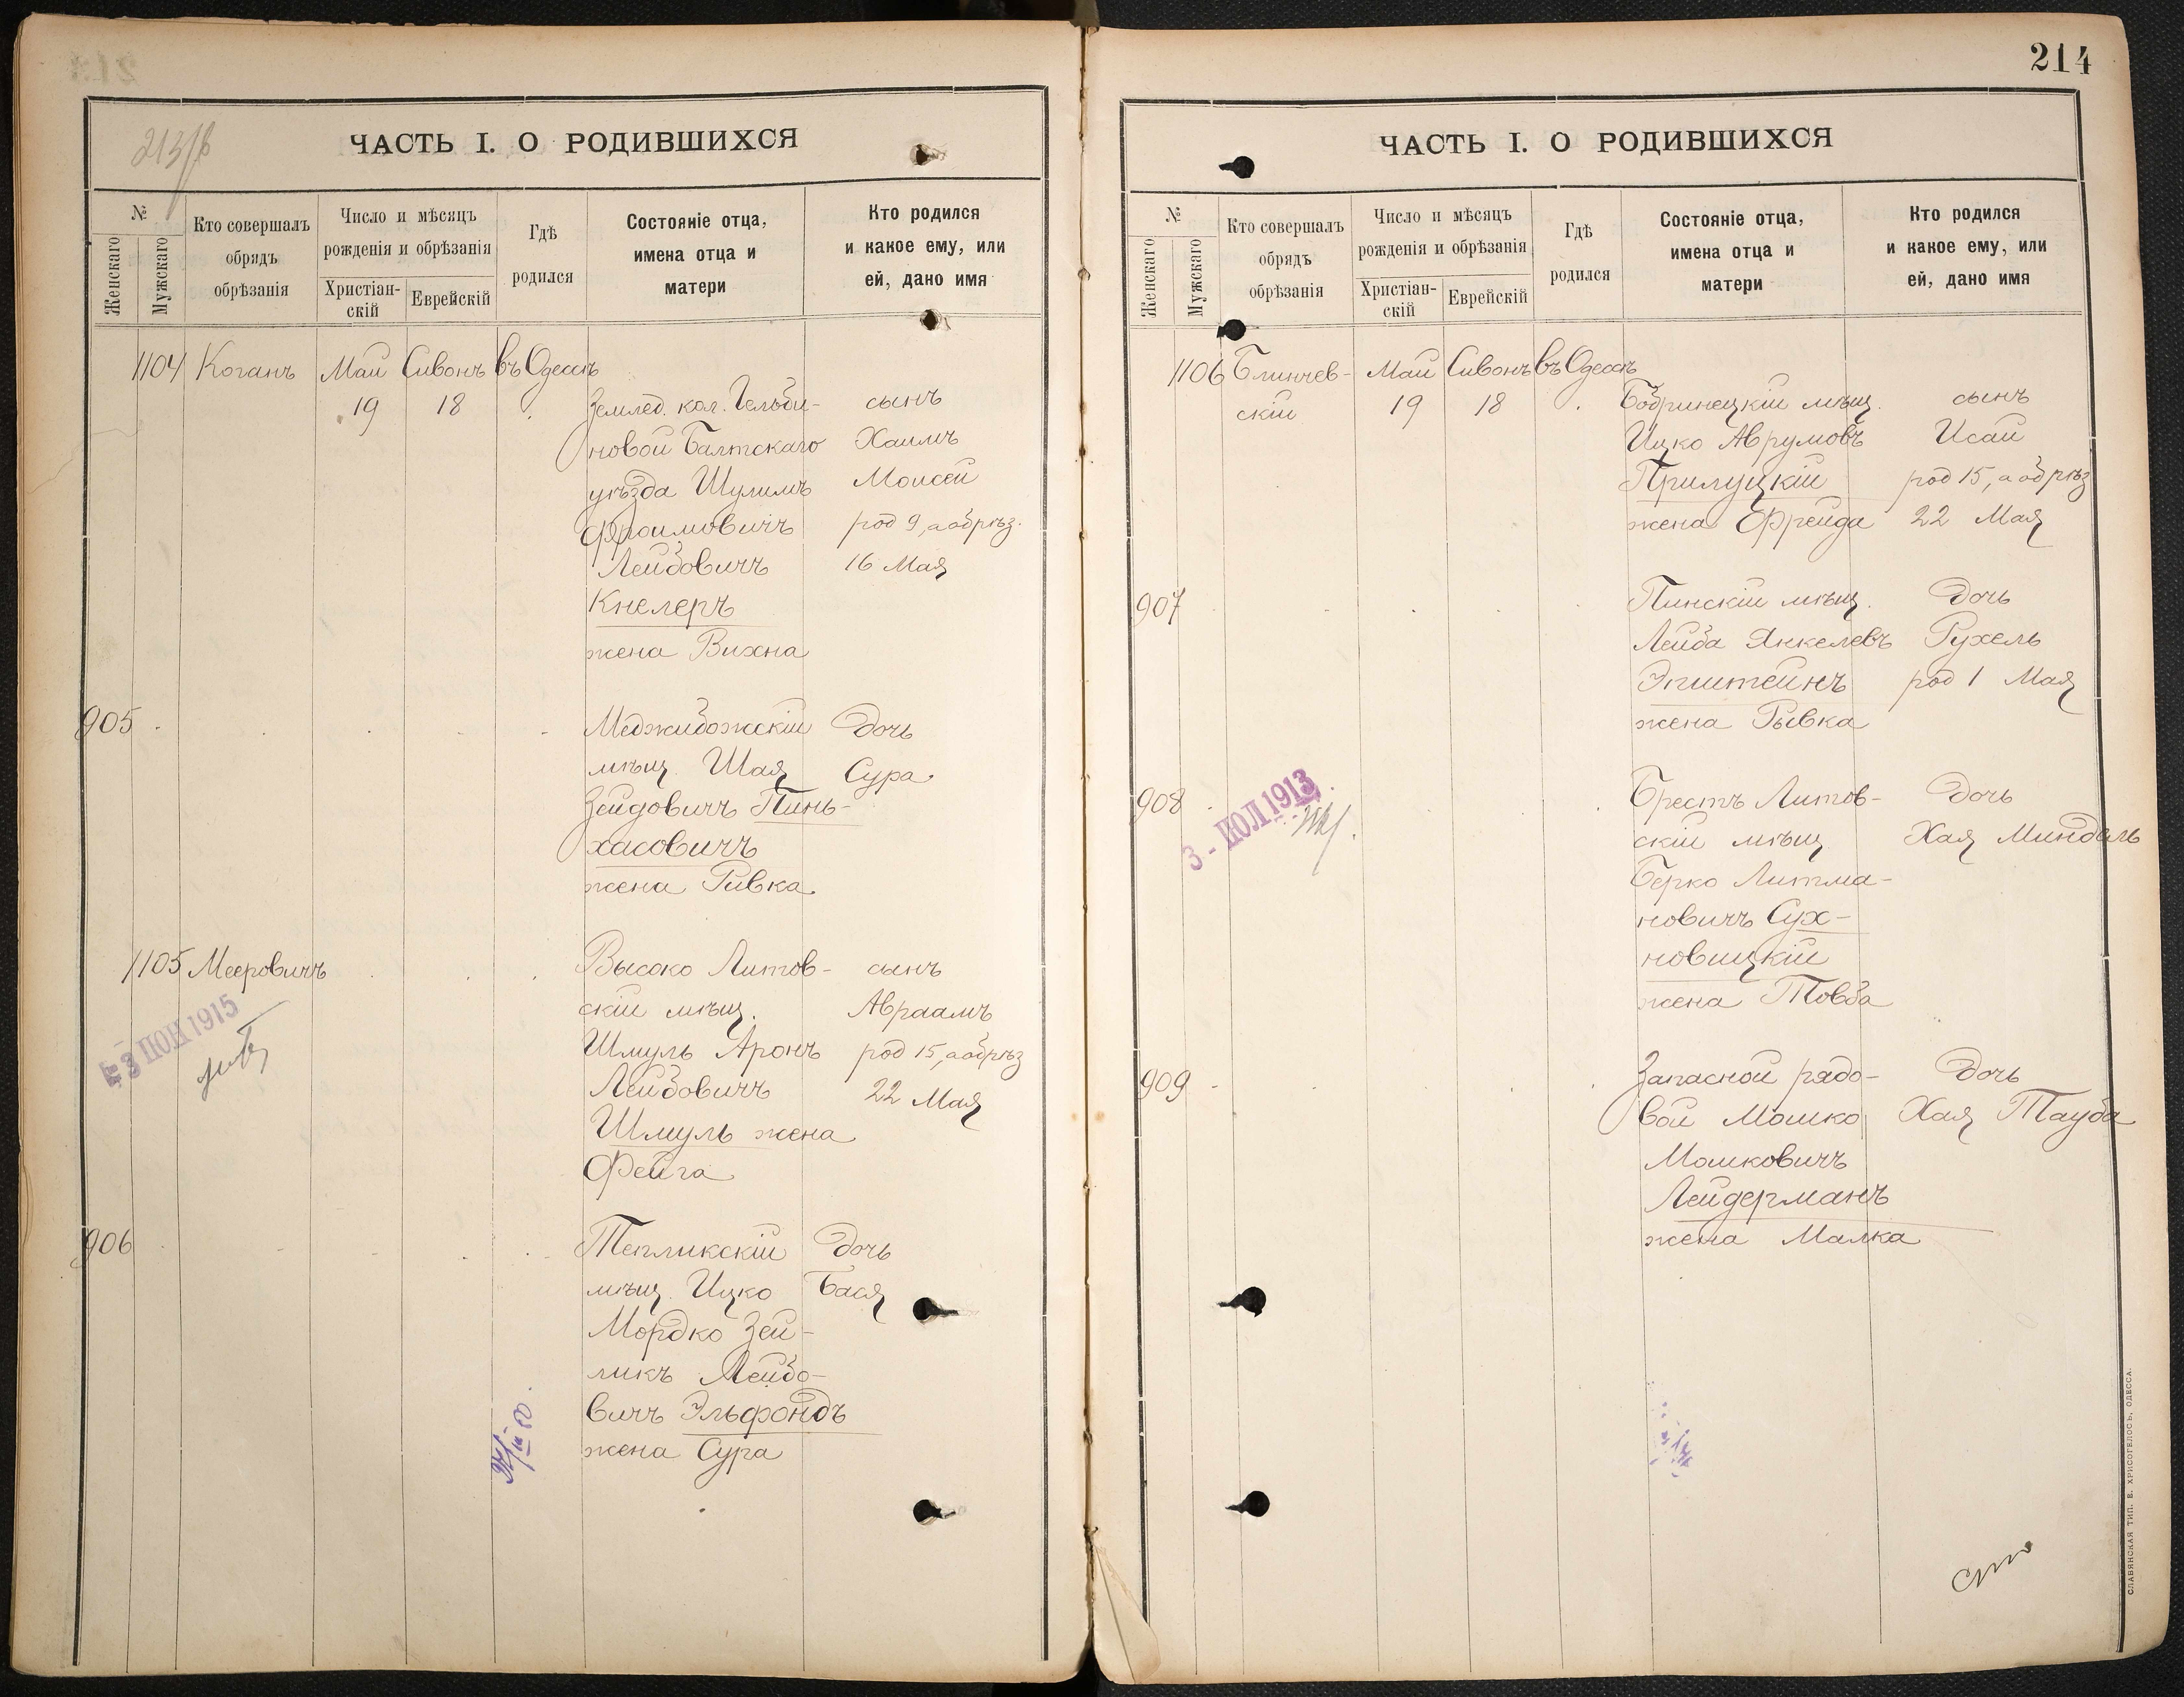 213/б
ЧАСТЬ I. О РОДИВШИХСЯ
№
Женскаго
Мужскаго
Кто совершалъ
обрядъ
обрѣзанія
Число и мѣсяцъ
рожденія и обрѣзанія
Христіан-
скій
Еврейскій
Гдѣ
родился
Состояніе отца,
имена отца и
матери
Кто родился
и какое ему, или
ей, дано имя
1104 Коганъ Май Сивонъ въ Одессѣ
19 18
Землед. кол. Гельби-
новой Балтскаго
уѣзда Шулимъ
Фроимовичъ
Лейбовичъ
Кнелеръ
жена Вихна
сынъ
Хаимъ
Моисей
род 9, а обрѣз.
16 Мая
905
Меджибожскій
мѣщ. Шая
Зейдовичъ Пинь-
хасовичъ
жена Ривка
дочь
Сура
1105 Мееровичъ
3 ІЮН 1915
Высоко Литов-
скій мѣщ.
Шмуль Аронъ
Лейбовичъ
Шмуль жена
Фейга
сынъ
Авраамъ
род 15, а обрѣз
22 Мая
906
Тепликскій
мѣщ. Ицко
Мордко Зей-
ликъ Лейбо-
вичъ Эльфондъ
жена Сура
дочь
Бася
214
ЧАСТЬ I. О РОДИВШИХСЯ
№
Женскаго
Мужскаго
Кто совершалъ
обрядъ
обрѣзанія
Число и мѣсяцъ
рожденія и обрѣзанія
Христіан-
скій
Еврейскій
Гдѣ
родился
Состояніе отца,
имена отца и
матери
Кто родился
и какое ему, или
ей, дано имя
1106 Блинчев- Май Сивонъ въ Одессѣ
скій 19 18
Бобринецкій мѣщ.
Ицко Аврумовъ
Прилуцкій
жена Фрейда
сынъ
Исай
род 15, а обрѣз
22 Мая
907
Пинскій мѣщ.
Лейба Янкелевъ
Эпштейнъ
жена Рывка
дочь
Рухель
род 1 Мая
908
3 - ІЮЛ 1913
Брестъ Литов-
скій мѣщ
Берко Литма-
новичъ Сух-
новицкій
жена Товба
дочь
Хая Миндель
909
Запасной рядо-
вой Мошко
Мошковичъ
Лейдерманъ
жена Малка
дочь
Хая Тауба
СЛАВЯНСКАЯ ТИП. Е. ХРИСОГЕЛОСЪ, ОДЕССА.